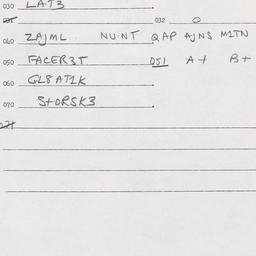 030 LAT3
032 0
040 ZAJML NU·NT QAP AJNS M1TN
050 FACER3T 051 A+ B+
060 GL8AT1K
070 StORSK3